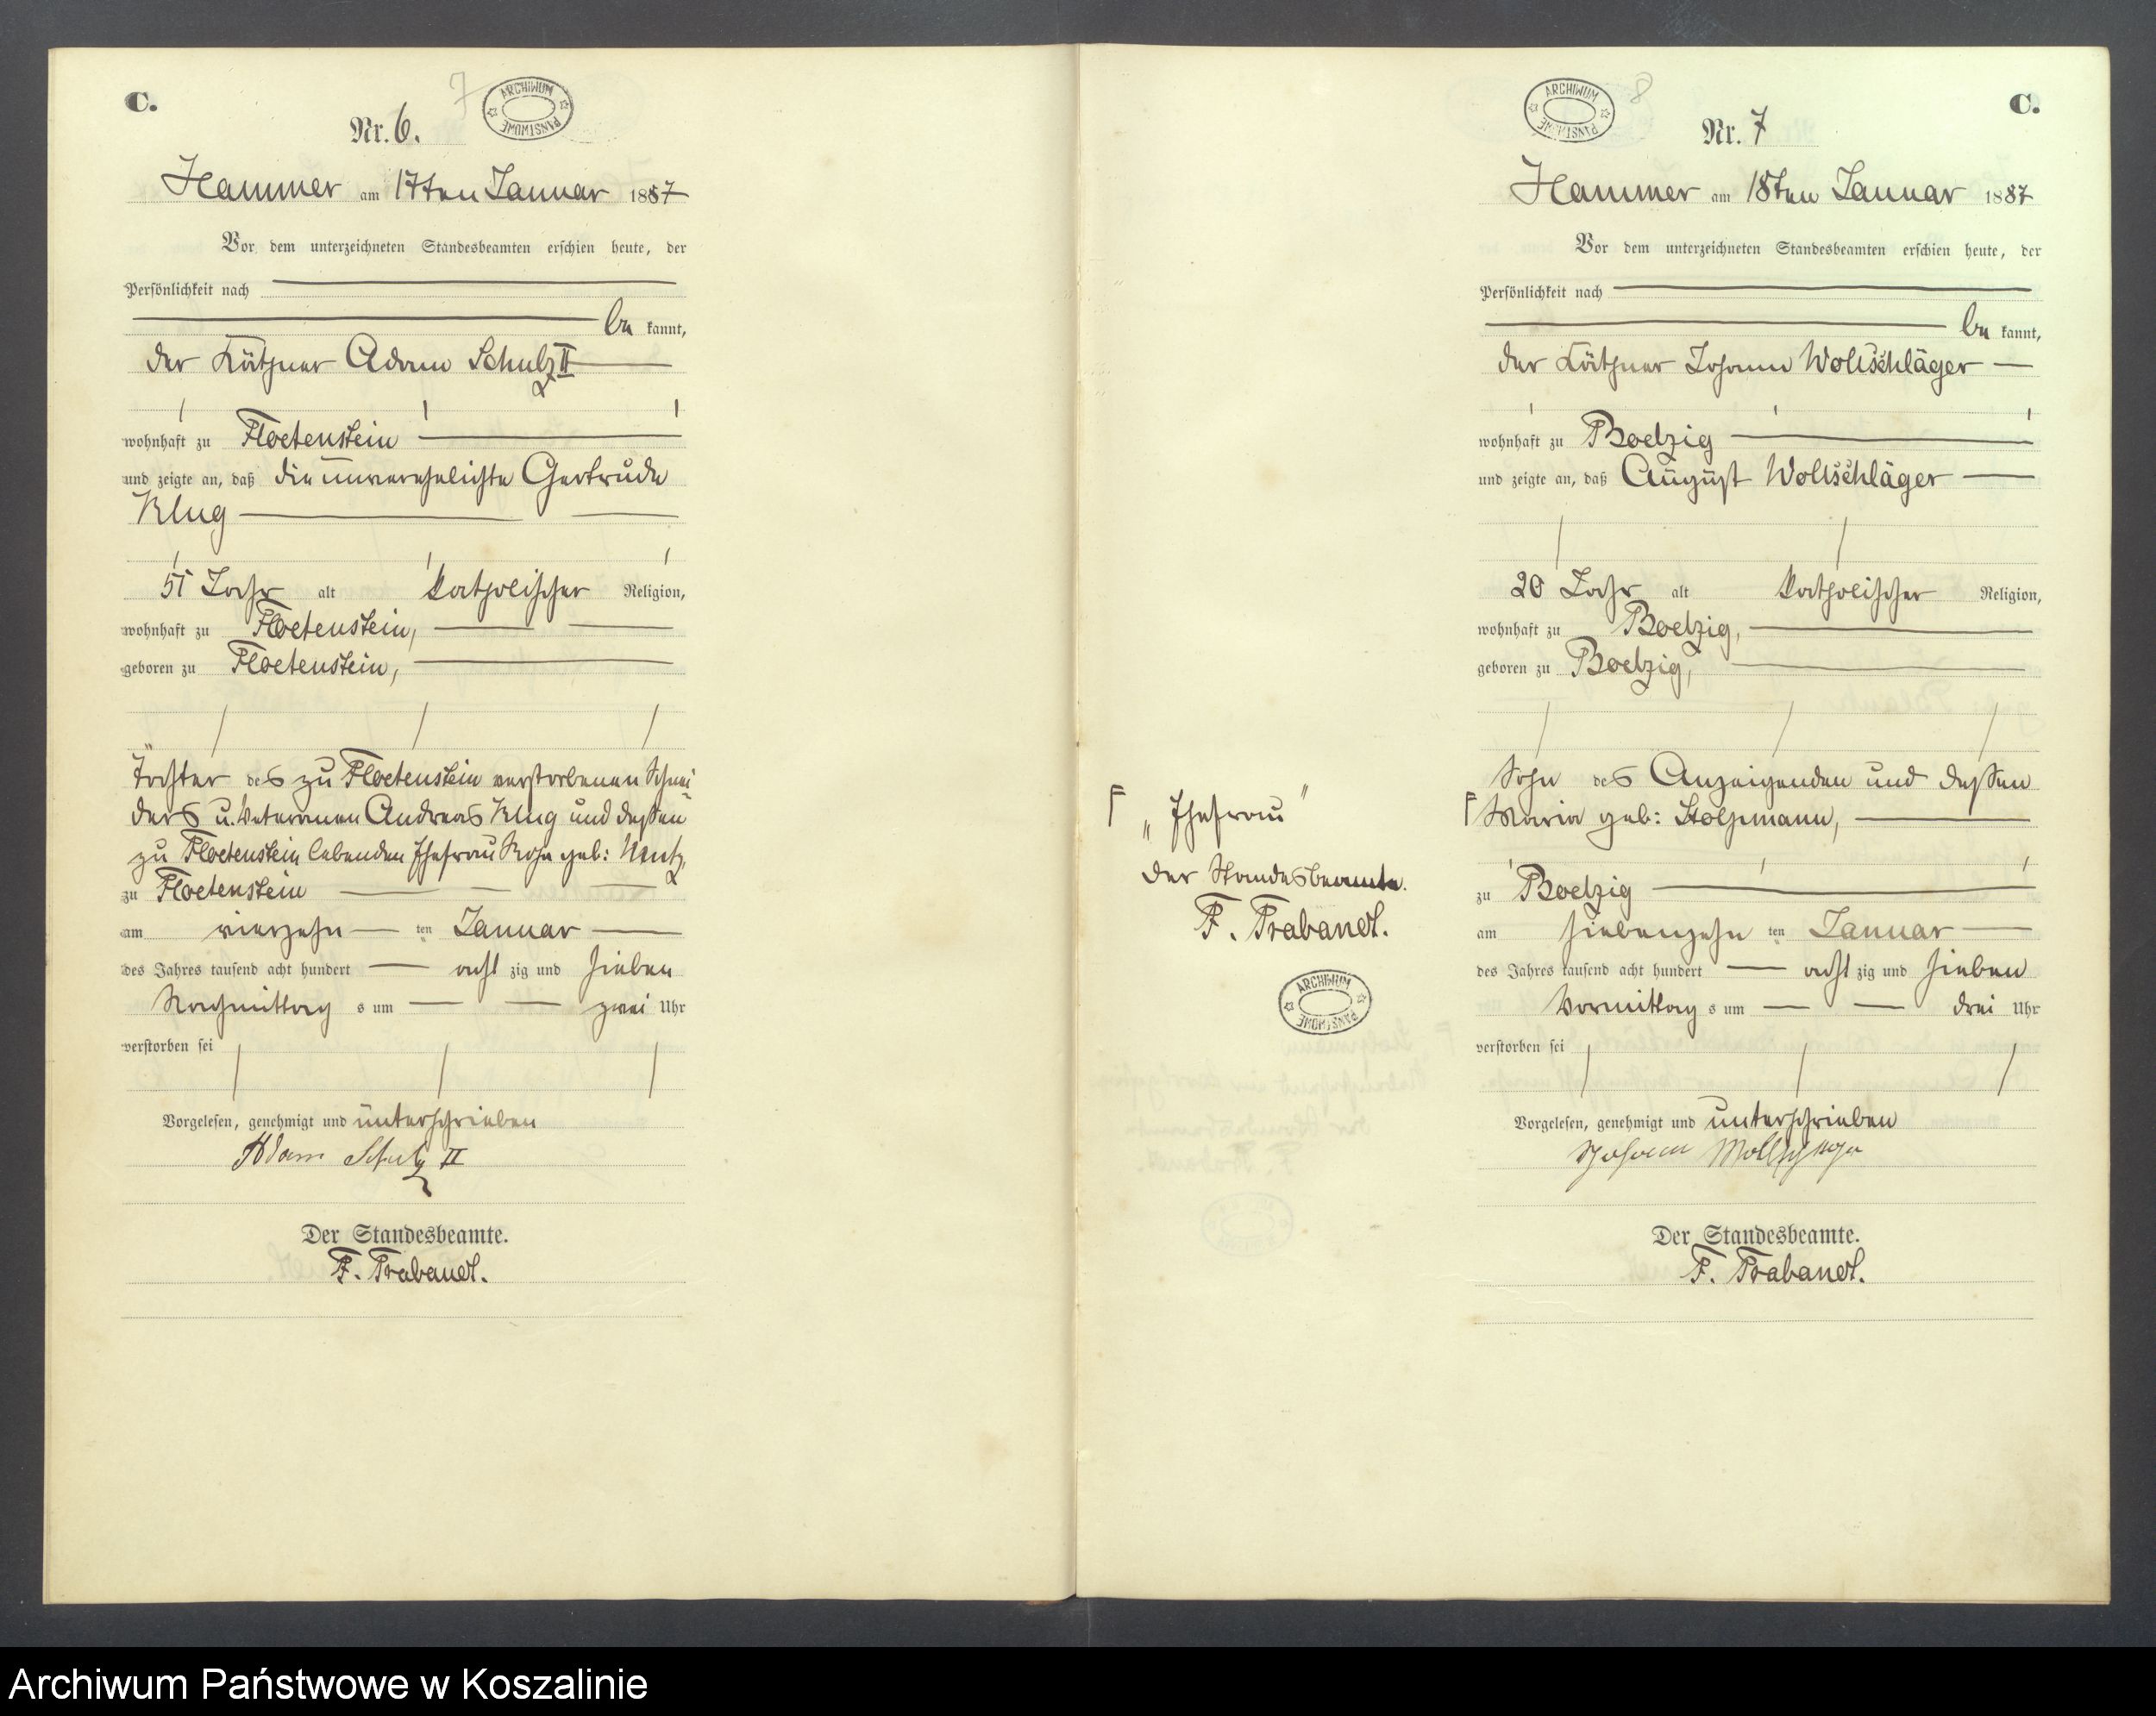 C.
7
ARCHIWUM PAŃSTWOWE
Nr. 6.
Hammer am 17ten Januar 1887
Vor dem unterzeichneten Standesbeamten erschien heute, der
Persönlichkeit nach
be kannt,
der Käthner Adam Schulz II
wohnhaft zu Floetenstein
und zeigte an, daß die unverehelichte Gertrude
Klug
51 Jahr alt katholischer Religion,
wohnhaft zu Floetenstein,
geboren zu Floetenstein,
Tochter des zu Floetenstein verstorbenen Schnei-
ders u. Veteranen Andreas Klug und dessen
zu Floetenstein lebenden Ehefrau Rosa geb:
zu Floetenstein
am vierzehn ten Januar
des Jahres tausend acht hundert acht zig und sieben
Nachmittag s um zwei Uhr
verstorben sei
Vorgelesen, genehmigt und unterschrieben
Adam Schulz II
Der Standesbeamte.
F. Trabandt.
ARCHIWUM PAŃSTWOWE
8
C.
Nr. 7
Hammer am 18ten Januar 1887
Vor dem unterzeichneten Standesbeamten erschien heute, der
Persönlichkeit nach
be kannt,
der Käthner Johann Wollschläger
wohnhaft zu Boelzig
und zeigte an, daß August Wollschläger
20 Jahr alt katholischer Religion,
wohnhaft zu Boelzig,
geboren zu Boelzig,
Sohn des Anzeigenden und dessen
F Maria geb: Stolpmann,
zu Boelzig
am siebenzehn ten Januar
des Jahres tausend acht hundert acht zig und sieben
Vormittag s um drei Uhr
verstorben sei
Vorgelesen, genehmigt und unterschrieben
Johann Wollschläger
Der Standesbeamte.
F. Trabandt.
F „Ehefrau"
der Standesbeamte.
F. Trabandt.
ARCHIWUM PAŃSTWOWE
Archiwum Państwowe w Koszalinie